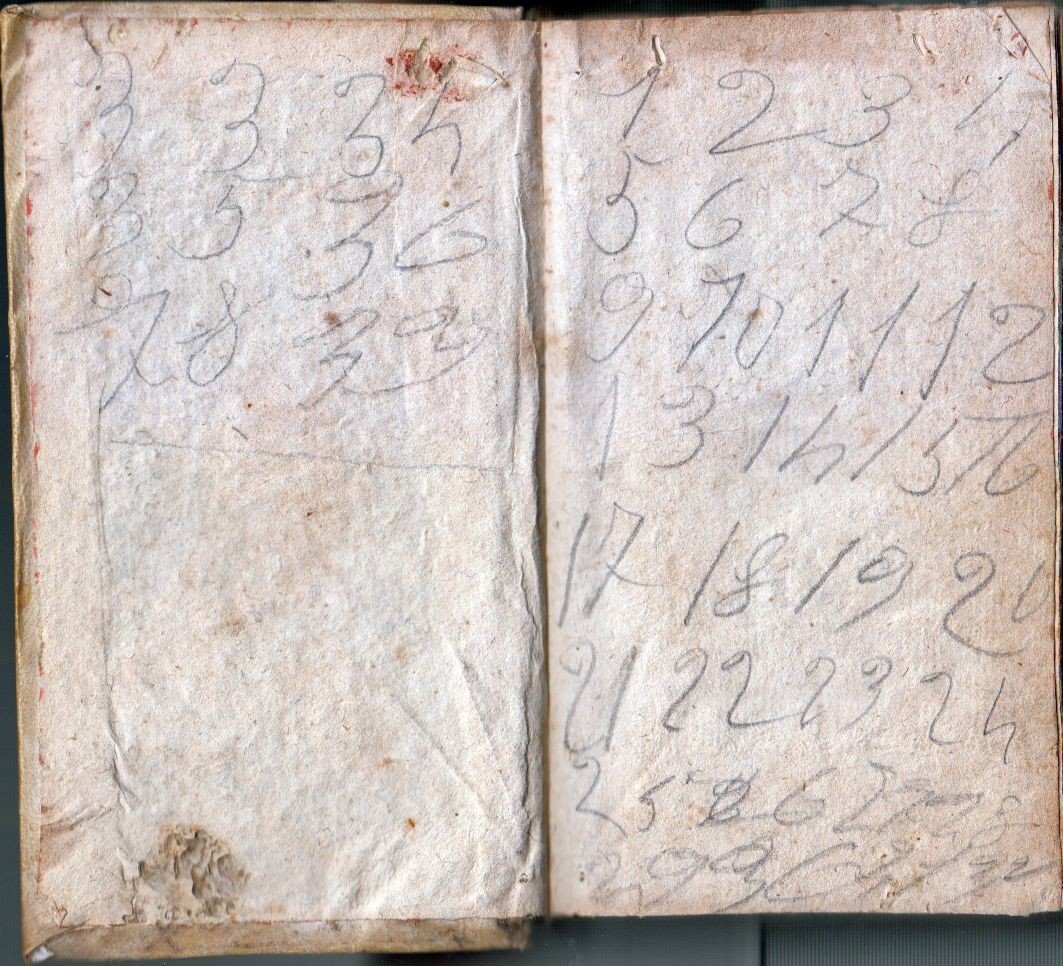 3 3 3 4
3 5 3 6
7 8
1 2 3 4
5 6 7 8
9 10 11 12
13 14 15 16
17 18 19 20
21 22 23 24
25 26 27 28
29